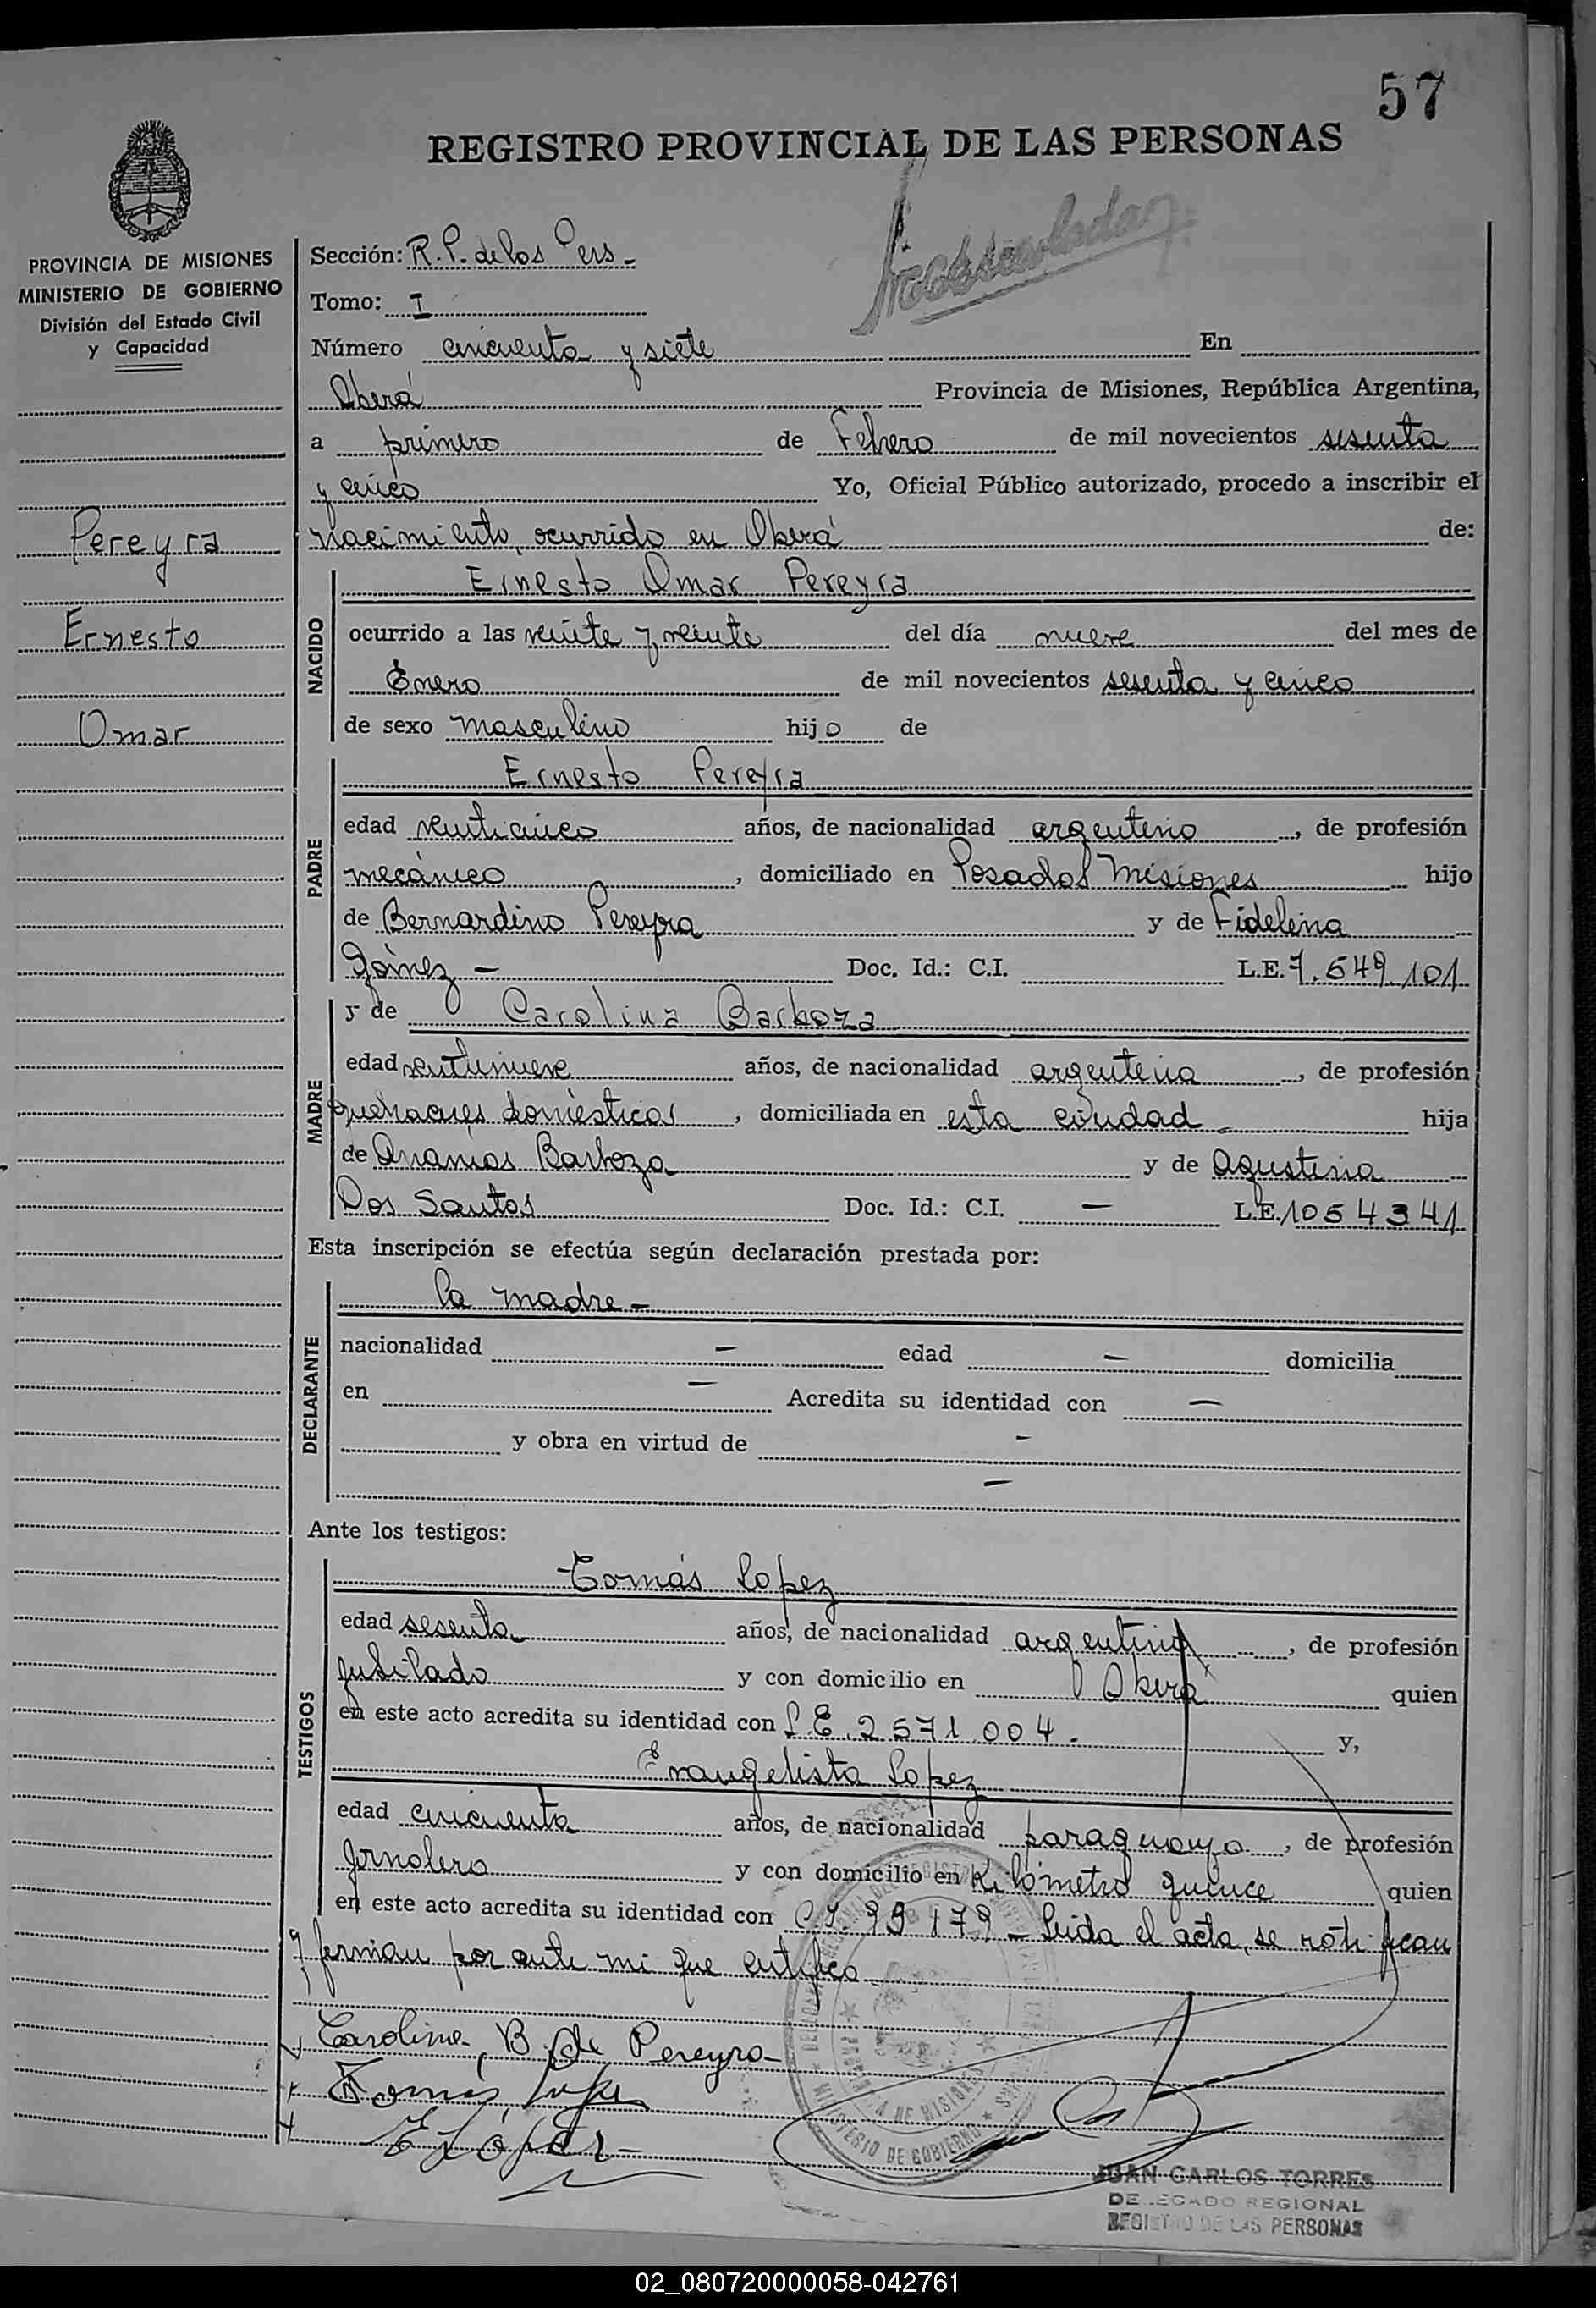 57
REGISTRO PROVINCIAL DE LAS PERSONAS
PROVINCIA DE MISIONES
MINISTERIO DE GOBIERNO
División del Estado Civil
y Capacidad
Pereyra
Ernesto
Omar
Sección: R.P. de los Pers -
Tomo: I
Número cincuenta y siete En
Oberá Provincia de Misiones, República Argentina,
a primero de Febrero de mil novecientos sesenta
y cinco Yo, Oficial Público autorizado, procedo a inscribir el
nacimiento, ocurrido en Oberá de:
NACIDO
Ernesto Omar Pereyra
ocurrido a las veinte y veinte del día nueve del mes de
Enero de mil novecientos sesenta y cinco
de sexo masculino hijo de
PADRE
Ernesto Pereyra
edad veinticinco años, de nacionalidad argentino, de profesión
mecánico, domiciliado en Posadas Misiones hijo
de Bernardino Pereyra y de Fidelina
Gómez - Doc. Id.: C.I. L.E. 7.549.101
MADRE
y de Carolina Barboza
edad veintinueve años, de nacionalidad argentina, de profesión
quehaceres domésticos, domiciliada en esta ciudad - hija
de Ananias Barboza y de Agustina
Dos Santos Doc. Id.: C.I. - L.E. 1054341
Esta inscripción se efectúa según declaración prestada por:
DECLARANTE
la madre -
nacionalidad - edad - domicilia
en - Acredita su identidad con -
y obra en virtud de -
-
Ante los testigos:
TESTIGOS
Tomás Lopez
edad sesenta años, de nacionalidad argentino, de profesión
jubilado y con domicilio en Oberá quien
en este acto acredita su identidad con L.E. 2571.004 - y,
Evangelista Lopez
edad cincuenta años, de nacionalidad paraguayo, de profesión
Jornalero y con domicilio en Kilómetro quince quien
en este acto acredita su identidad con C.I. 99179 - Leida el acta, se ratifican
y firman por ante mi que certifico
Carolina B de Pereyra
Tomás Lopez
E López -
PROVINCIA DE MISIONES
MINISTERIO DE GOBIERNO
JUAN CARLOS TORRES
DELEGADO REGIONAL
REGISTRO DE LAS PERSONAS
02_080720000058-042761